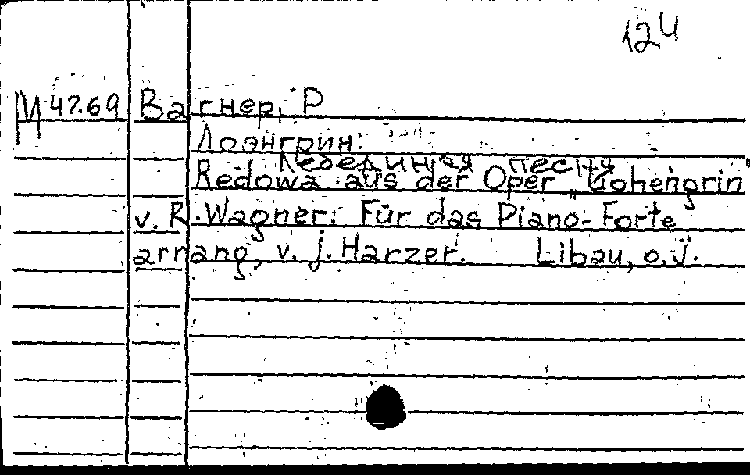 124
М 47.69 Вагнер, Р
Лоэнгрин:
Лебединая песня
Redowa aus der Oper „Lohengrin"
v. R. Wagner. Für das Piano-Forte
arrang, v. J. Harzer. Libau, o.J.